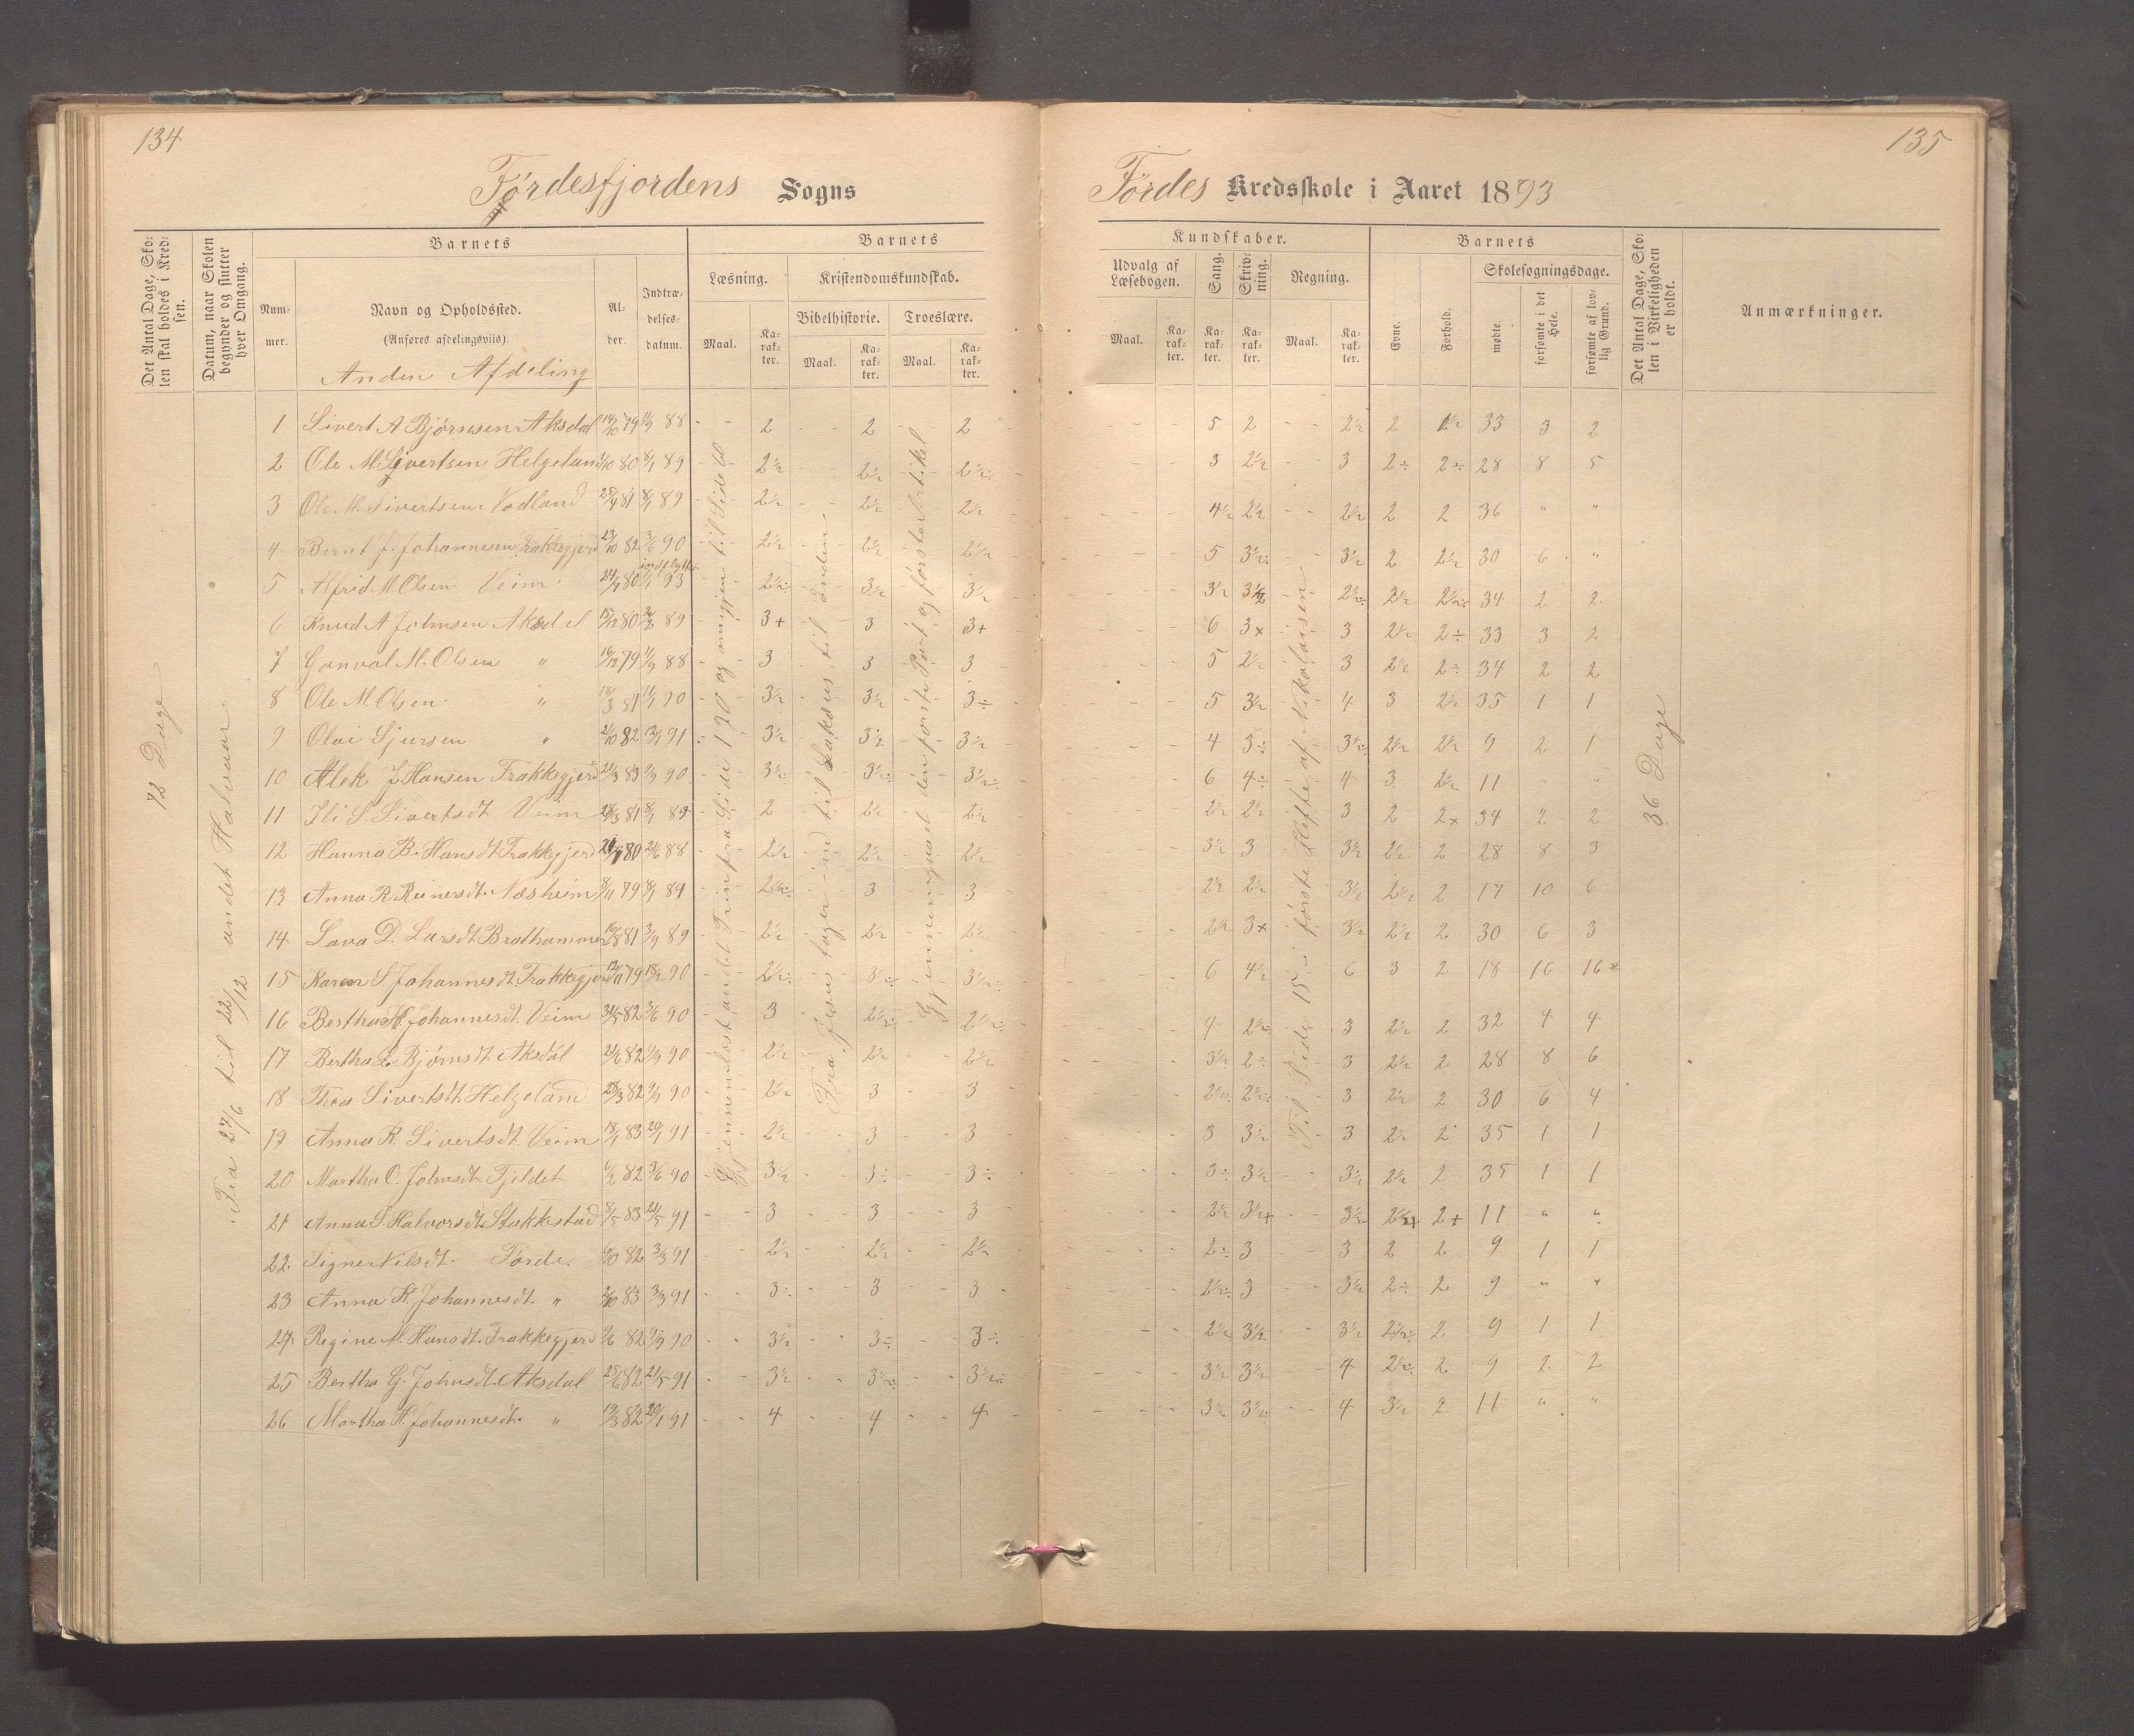 134
Førdesfjordens Sogns
Det Antal Dage, Sko-
len skal holdes i Kred-
sen.
Datum, naar Skolen
begynder og slutter
hver Omgang.
Barnets
Num-
mer.
Navn og Opholdssted.
(Anføres afdelingsviis).
Anden Afdeling
Al-
der.
Indtræ-
delses-
datum.
Barnets
Læsning.
Kristendomskundskab.
Bibelhistorie.
Troeslære.
Maal.
Ka-
rak-
ter.
Maal.
Ka-
rak-
ter.
Maal.
Ka-
rak-
ter.
72 Dage
Fra 27/6 til 22/12 andet Halvaar.
1 Sivert A Bjørnsen Aksdal 88 2 2 2
2 Ole M. Sivertsen Helgeland 80 8/1 89 2½ 2½ 2½
3 Ole M. Sivertsen Vodland 25/4 81 8/1 89 2½ 2½ 2½
4 Bernt J. Johannesen Frakkegjerd 23/10 82 3/6 90 2½ 2½ 2½
5 Alfrid M. Olsen Veim 80 93 2½ 3½ 3½
6 Knud A Johnsen Aksdal 15/12 80 89 3+ 3 3+
7 Gonval M. Olsen " 16/12 79 88 3 3 3
8 Ole M Olsen " 81 90 3½ 3½ 3÷
9 Olai Sjursen " 82 91 3½ 3½ 3½
10 Alek J. Hansen Frakkegjerd 83 90 3½ 3½ 3½
11 Ili S. Sivertsdt. Veim 81 8/1 89 2 2½ 2½
12 Hanna B. Hansdt. Frakkegjerd 80 88 2½ 2½ 2½
13 Anna R. Reinersdt. Næsheim 8/11 79 8/1 89 2½ 3 3
14 Lava D. Larsdt. Brathammer 81 89 2½ 2½ 2½
15 Karen S. Johannesdt. Frakkegjerd 79 90 2½ 3½
16 Bertha H. Johannesdt. Veim 82 3/6 90 3 2½ 2½
17 Bertha L. Bjørnsdt. Aksdal 82 90 2½ 2½ 2½
18 Thea Sivertsdt. Helgeland 28/3 82 90 2½ 3 3
19 Anna R. Sivertsdt. Veim 18/1 83 20/1 91 2½ 3 3
20 Martha O. Johnsdt. Fjildet 6/2 82 3/6 90 3½ 3÷ 3÷
21 Anna S. Halvorsdt. Stakkestad 8/5 83 21/5 91 3 3 3
22 Signe Nilsdt. Førde. 82 3/3 91 2½ 2½ 2½
23 Anna K. Johannesdt. " 83 3/3 91 3÷ 3 3
24 Regine M. Hansdt. Frakkegjerd 82 90 3½ 3÷ 3÷
25 Bertha G. Johnsdt. Aksdal 25/6 82 21/5 91 3½ 3½ 3½
26 Martha H. Johannesdt. " 19/3 82 20/1 91 4 4 4
Gjennemlæst andet Trin fra Side 120 og omigjen til Side
Fra Jesus tager ind til Sakæus til Enden
Gjennemgaaet den første Part og første Artikel
135
Førdes Kredsskole i Aaret 1893
Kundskaber.
Udvalg af
Læsebogen.
Sang.
Skriv-
ning.
Regning.
Maal.
Ka-
rak-
ter.
Ka-
rak-
ter.
Ka-
rak-
ter.
Maal.
Ka-
rak-
ter.
Barnets
Evne.
Forhold.
Skolesøgningsdage.
mødte.
forsømte i det
Hele.
forsømte af lov-
lig Grund.
Det Antal Dage, Sko-
len i Virkeligheden
er holdt.
Anmærkninger.
5 2 2½ 2 1½ 33 3 2
3 2½ 3 2÷ 2÷ 28 8 5
4½ 2½ 2½ 2 2 36 " "
5 3½ 3½ 2 2½ 30 6 "
3½ 3½ 2½ 2½ 2½ 34 2 2
6 3× 3 2½ 2÷ 33 3 2
5 2½ 3 2½ 2÷ 34 2 2
5 3½ 4 3 2½ 35 1 1
4 3÷ 3½ 2½ 2½ 9 2 1
6 4÷ 4 3 2½ 11 " "
2½ 2½ 3 2 2× 34 2 2
3½ 3 3½ 2½ 2 28 8 3
2½ 2½ 3½ 2½ 2 17 10 6
2½ 3× 3½ 2½ 2 30 6 3
6 4½ 6 3 2 18 16 16*
4 2½ 3 2½ 2 32 4 4
3½ 2÷ 3 2½ 2 28 8 6
2½ 2½ 3 2½ 2 30 6 4
3 3½ 3 2½ 2 35 1 1
3÷ 3½ 3½ 2½ 2 35 1 1
2½ 3½+ 3½ 2½+ 2+ 11 " "
2÷ 3 3 2 2 9 1 1
2½ 3 3½ 2÷ 2 9 " "
2½ 3½ 3½ 2½ 2 9 1 1
3½ 3½ 4 2½ 2 9 2 2
3½ 3½ 4 3½ 2 11 " "
Til Side 15 i første Hefte af Nikolaisen
36 Dage